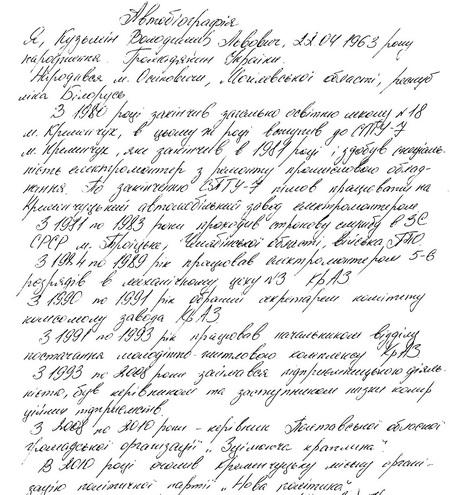 Автобіографія
Я, Кузьмін Володимир Львович, 28.04 1963 року
народження. Громадянин України.
Народився м. Осіповичи, Могілевської області, респуб
ліка Білорусь
З 1980 році закінчив загально освітню школу №18
м. Кременчук, в цьому ж році вступив до СПТУ-7
м. Кременчук, яке закінчив в 1981 році і здобув спеціаль-
ність електромонтер з ремонту промислового облад-
нання. По закінченню СПТУ-7 пішов працювати на
Кременчуцький автомобільний завод електромонтером
З 1981 по 1983 роки проходив строкову службу в ЗС
СРСР м. Троїцьк, Челябінської області, війська ППО
З 1984 по 1989 рік працював електромонтером 5-6
розрядів в механічному цеху №3 КрАЗ
З 1990 по 1991 рік обраний секретарем комітету
комсомолу завода КрАЗ.
З 1991 по 1993 рік працював начальником відділу
постачання молодіжно-житлового комплексу КрАЗ
З 1993 по 2008 роки займався підприємницькою діяль-
ністю, був керівником та заступником низки комер
ційних підприємств.
З 2008 по 2010 роки - керівник Полтавської обласної
громадської організації „Зцілююча краплина".
В 2010 році очолив кременчуцьку міську органі-
зацію політичної партії „Нова політика"